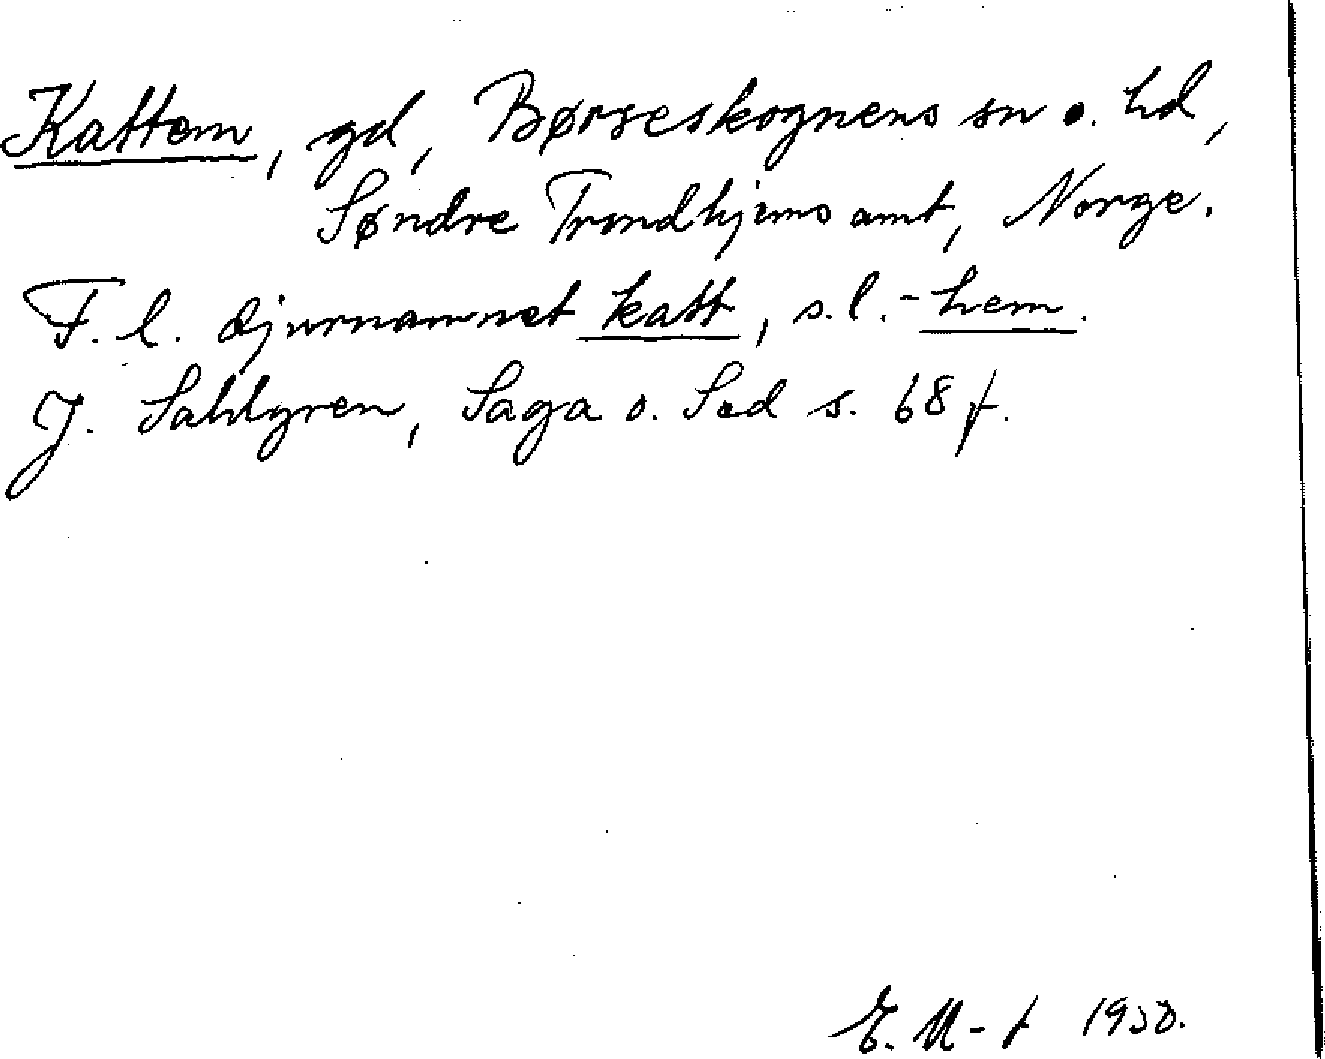 Kattem, gd, Børseskognens sn o. hd,
Søndre Trondhjems amt, Norge.
F.l. djurnamnet katt, s.l. -hem.
J. Sahlgren, Saga o. Sed s. 68 f.
E. M-t 1950.